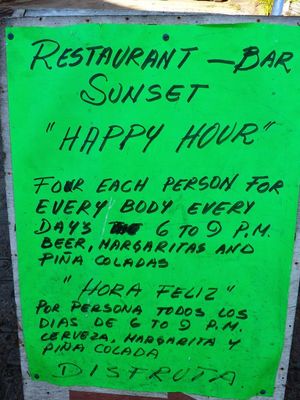 RESTAURANT - BAR
SUNSET
"HAPPY HOUR"
FOUR EACH PERSON FOR
EVERY BODY EVERY
DAYS 6 TO 9 P.M.
BEER, MARGARITAS AND
PIÑA COLADAS
"HORA FELIZ"
POR PERSONA TODOS LOS
DIAS DE 6 TO 9 P.M.
CERVEZA, MARGARITA Y
PIÑA COLADA
DISFRUTA